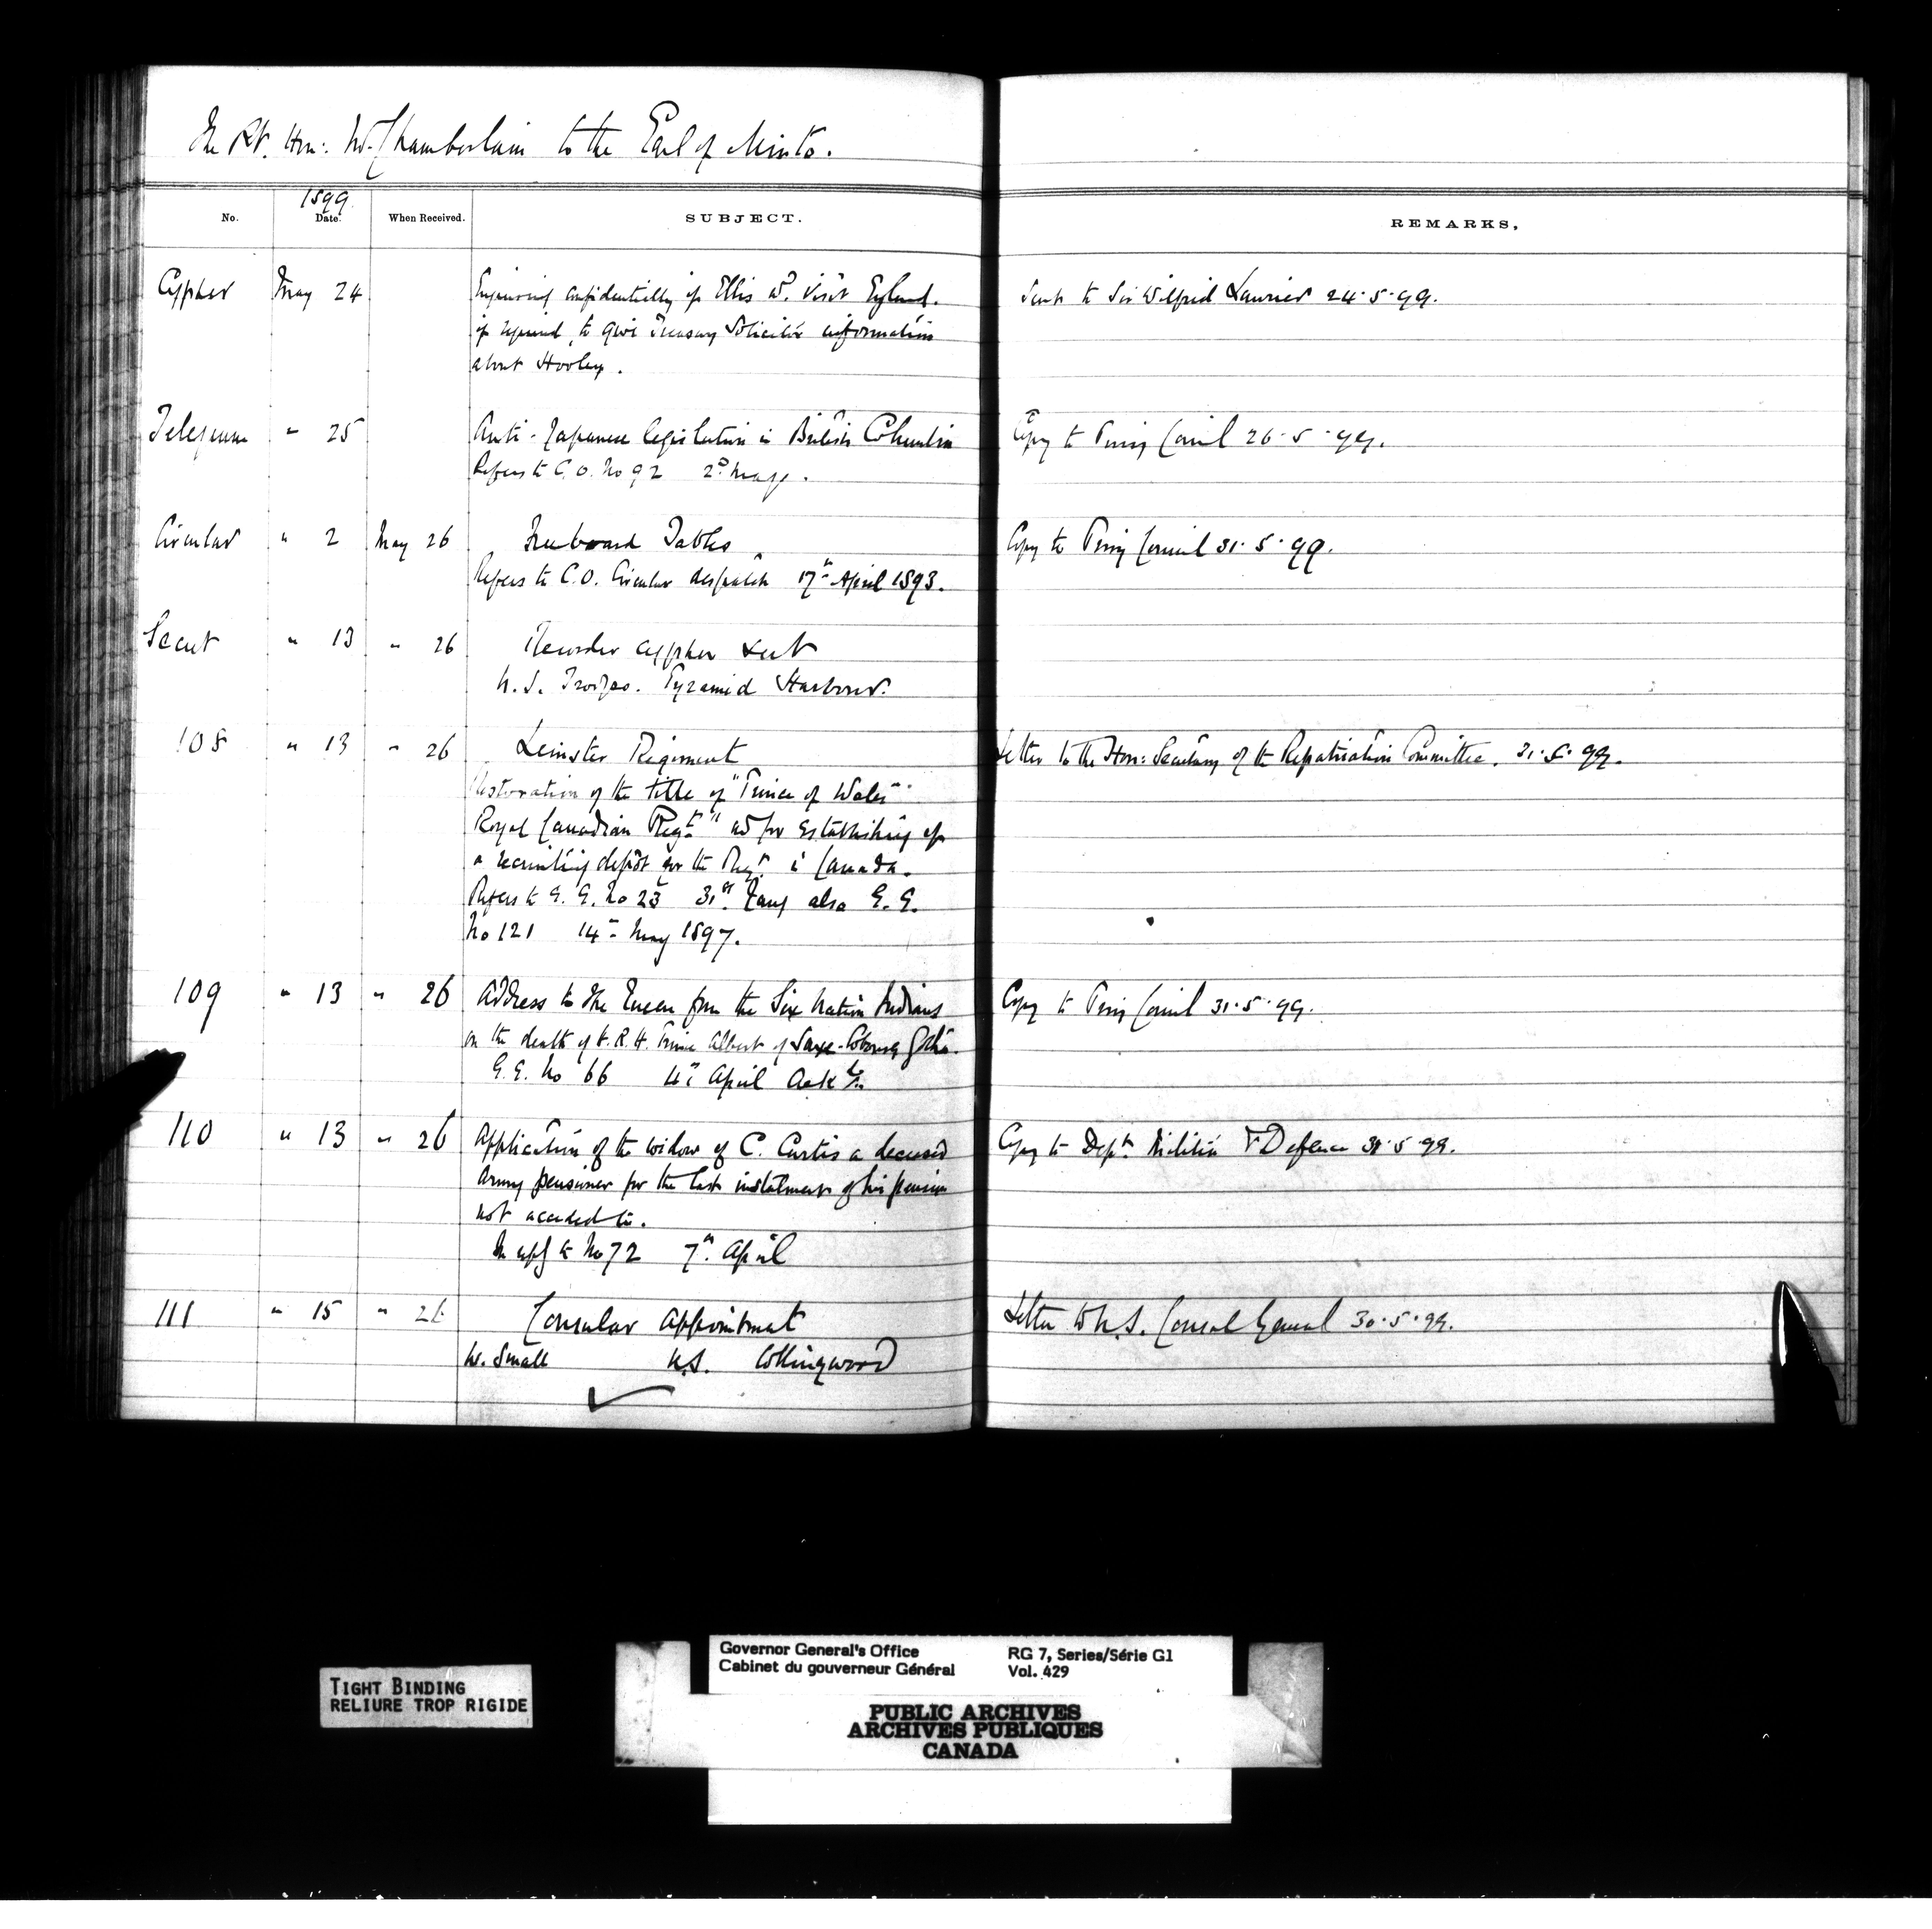 The Rt. Hon: Mr. Chamberlain to the Earl of Minto.
1899
No. Date. When Received. SUBJECT. REMARKS.
Cypher May 24 Enquiring confidentially if Ellis wd. visit England. Sent to Sir Wilfrid Laurier 24.5.99.
if required, to give Treasury Solicitor information
about Hooley.
Telegram " 25 Anti-Japanese legislation in British Columbia Copy to Privy Council 26.5.99.
Refers to C.O. No 92 2nd
Circular " 2 May 26 Freeboard Tables Copy to Privy Council 31.5.99.
Refers to C.O. Circular despatch 17th April 1893.
Secret " 13 " 26 Recorder cypher sent
U.S. Troops. Pyramid Harbour.
108 " 13 " 26 Leinster Regiment Letter to the Hon: Secretary of the Repatriation Committee. 31.5.99.
Restoration of the title of "Prince of Wales'
Royal Canadian Regt." and for establishing of
a recruiting depôt for the Regt. in Canada.
Refers to G.G. No 23 31st Jany also G.G.
No 121 14th May 1897.
109 " 13 " 26 Address to the Queen from the Six Nation Indians Copy to Privy Council 31.5.99.
on the death of H.R.H. Prince Albert of Saxe-Cobourg Gotha.
G.G. No 66 4th April Ack
110 " 13 " 26 Application of the widow of C. Curtis a deceased Copy to Deptt. Militia & Defence 31.5.99.
Army pensioner for the last instalment of his pension
not acceded to.
In reply to No 72 7th April
111 " 15 " 26 Consular Appointment Letter to U.S. Consul General 30.5.99.
W. Small U.S. Collingwood
TIGHT BINDING
RELIURE TROP RIGIDE
Governor General's Office RG 7, Series/Série G1
Cabinet du gouverneur Général Vol. 429
PUBLIC ARCHIVES
ARCHIVES PUBLIQUES
CANADA